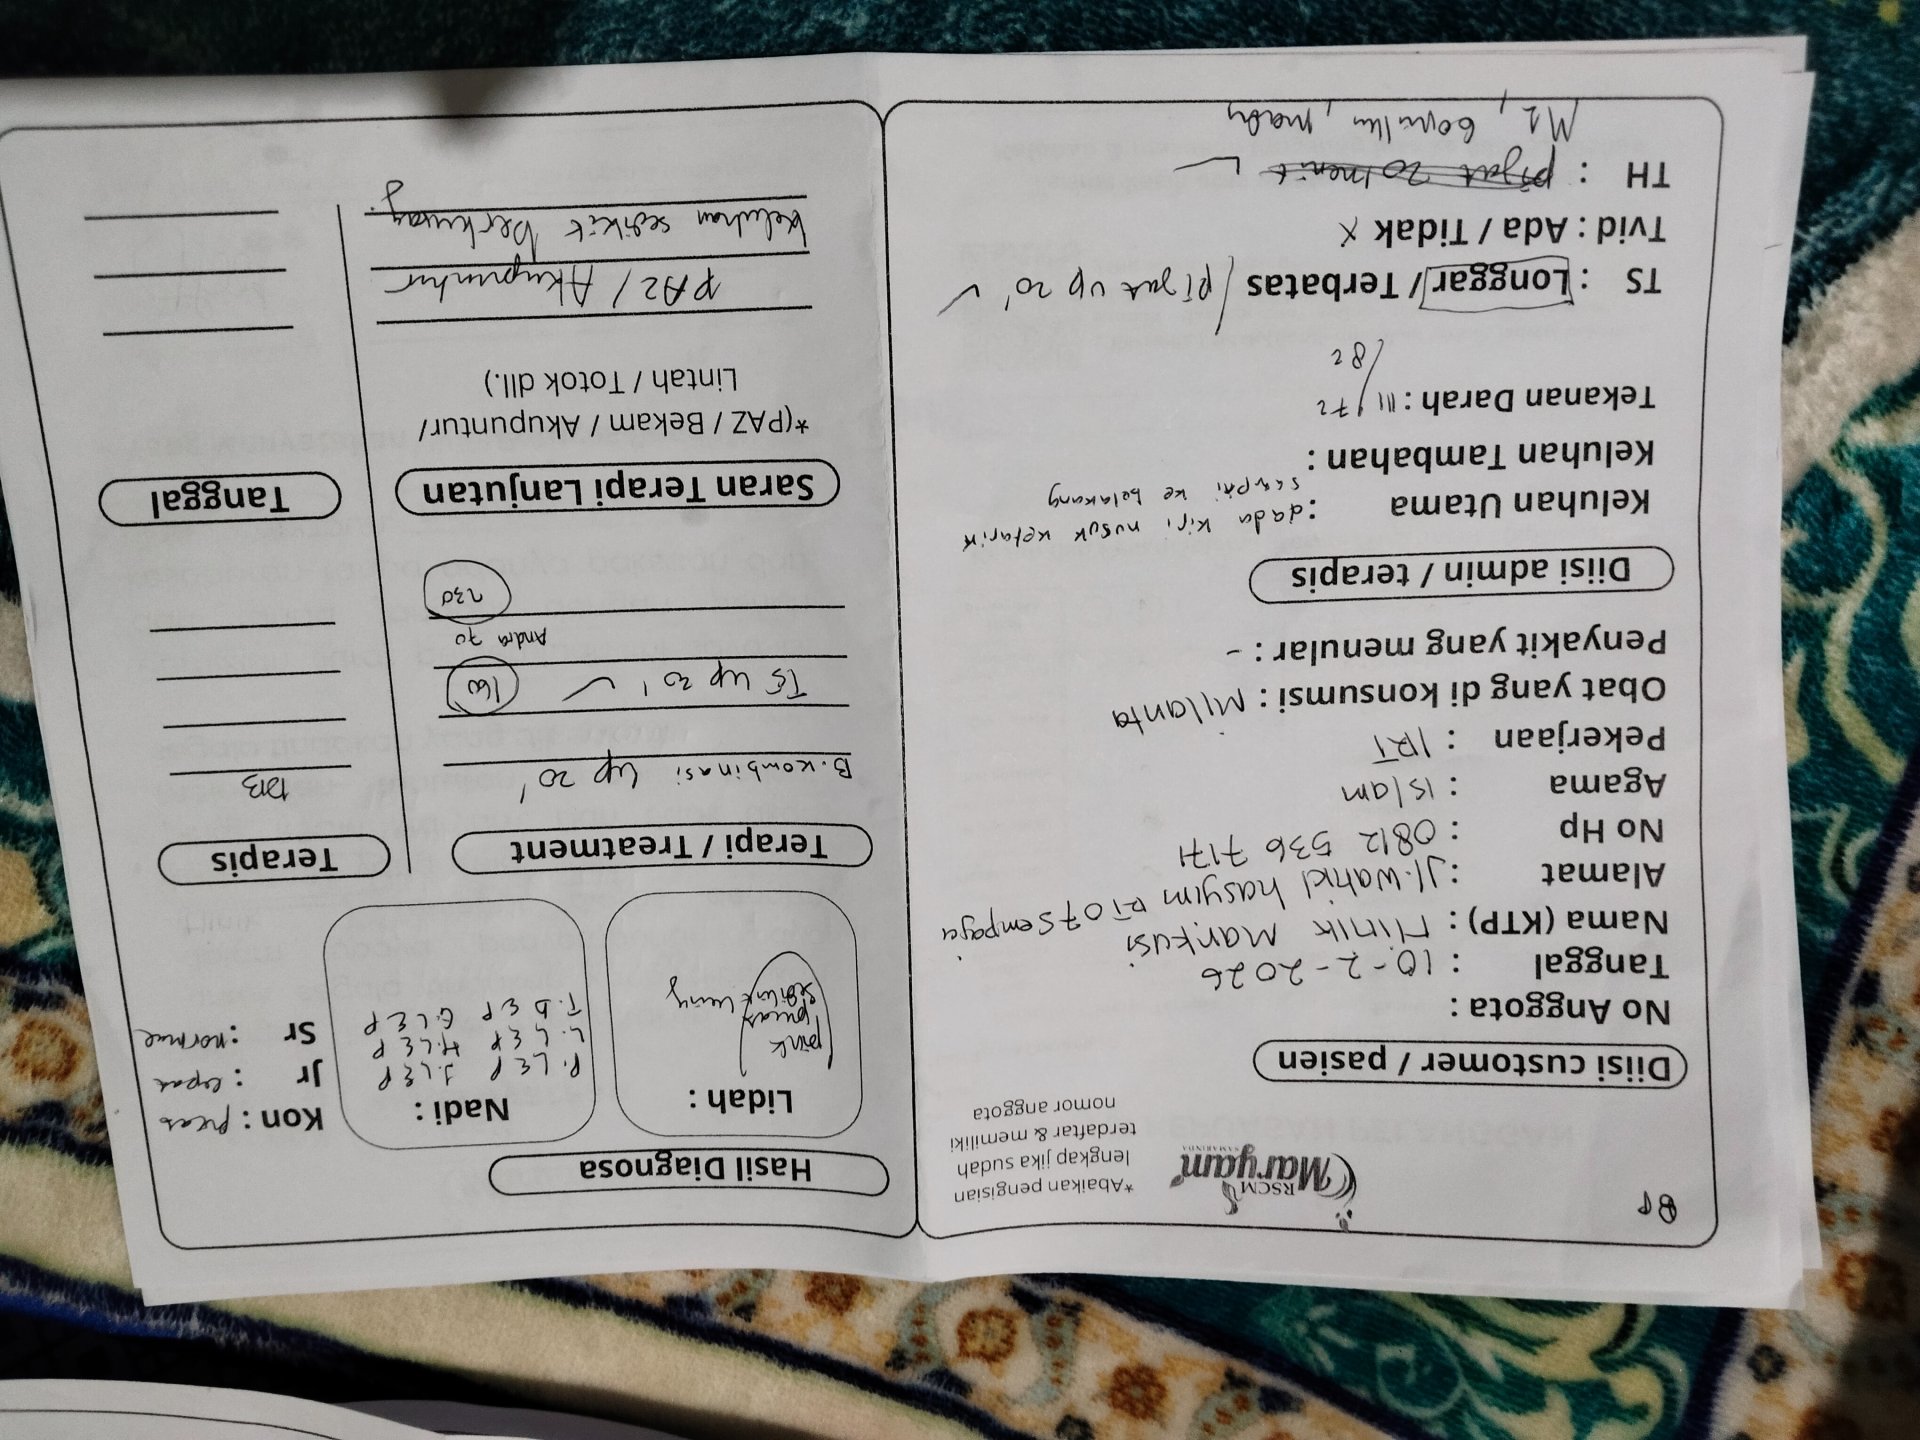 BP
RSCM
Maryam
SAMARINDA
*Abaikan pengisian
lengkap jika sudah
terdaftar & memiliki
nomor anggota
Diisi customer / pasien
No Anggota :
Tanggal : 10-2-2026
Nama (KTP) : Ninik Markusi
Alamat : Jl. wahid hasyim RT 07 Sempaja
No Hp : 0812 536 7171
Agama : Islam
Pekerjaan : IRT
Obat yang di konsumsi : Milanta
Penyakit yang menular : -
Diisi admin / terapis
Keluhan Utama : dada kiri nusuk ketarik
sampai ke belakang
Keluhan Tambahan :
Tekanan Darah : 111/72
/82
TS : Longgar / Terbatas / pijat up 20' ✓
Tvid : Ada / Tidak x
TH : pijat 20 menit
M2,
Hasil Diagnosa
Lidah :
pink
pucat
sedikit kuning
Nadi :
P. L E P J. L E P
L. L E P H. L E P
T. D E P G. L E P
Kon : pucat
Jr : cepat
Sr : normal
Terapi / Treatment
B. kombinasi up 20'
TS up 30' ✓ 160
Andra 70
230
Terapis
Saran Terapi Lanjutan
*(PAZ / Bekam / Akupuntur/
Lintah / Totok dll.)
PAZ / Akupuntur
Keluhan sedikit berkurang.
Tanggal